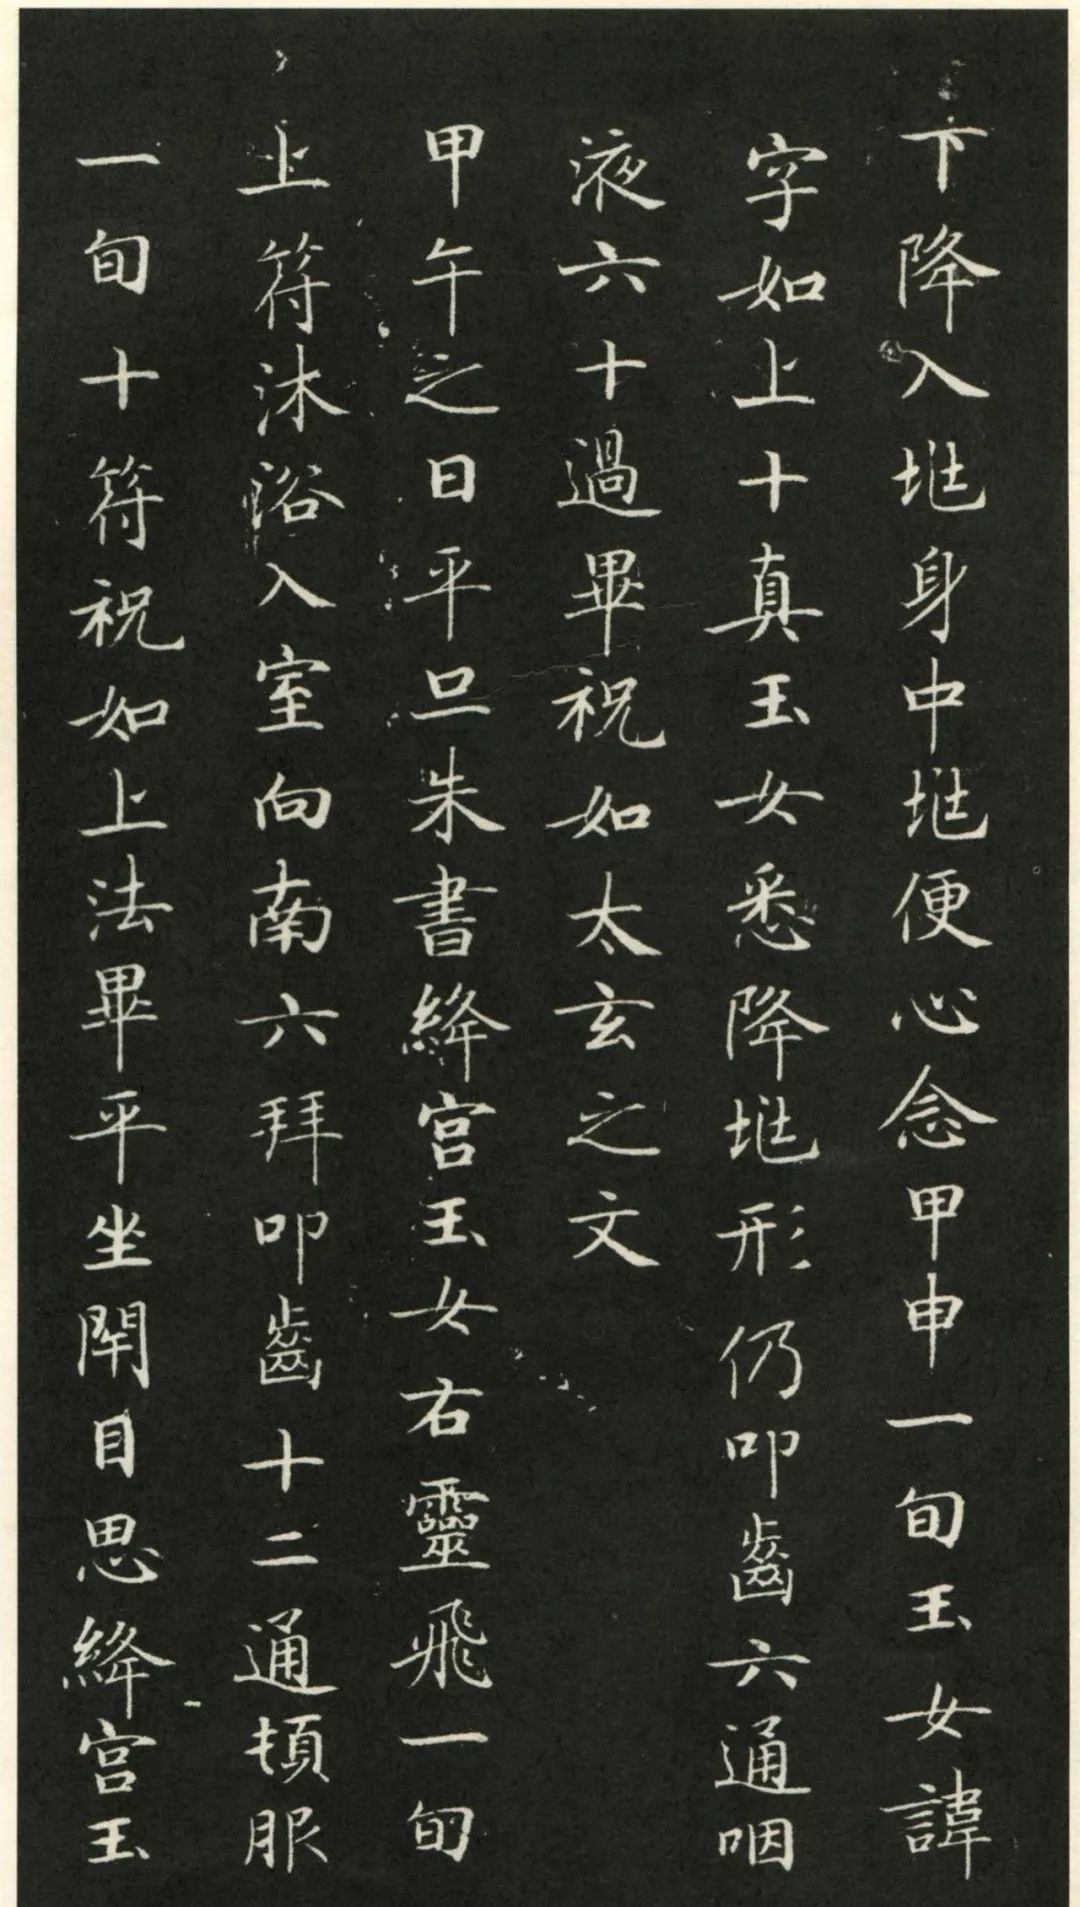 下降入埊身中埊便心念甲申一旬玉女諱
字如上十真玉女悉降埊形仍叩齒六通咽
液六十過畢祝如太玄之文
甲午之日平旦朱書絳宮玉女右靈飛一旬
上符沐浴入室向南六拜叩齒十二通頓服
一旬十符祝如上法畢平坐閇目思絳宮玉